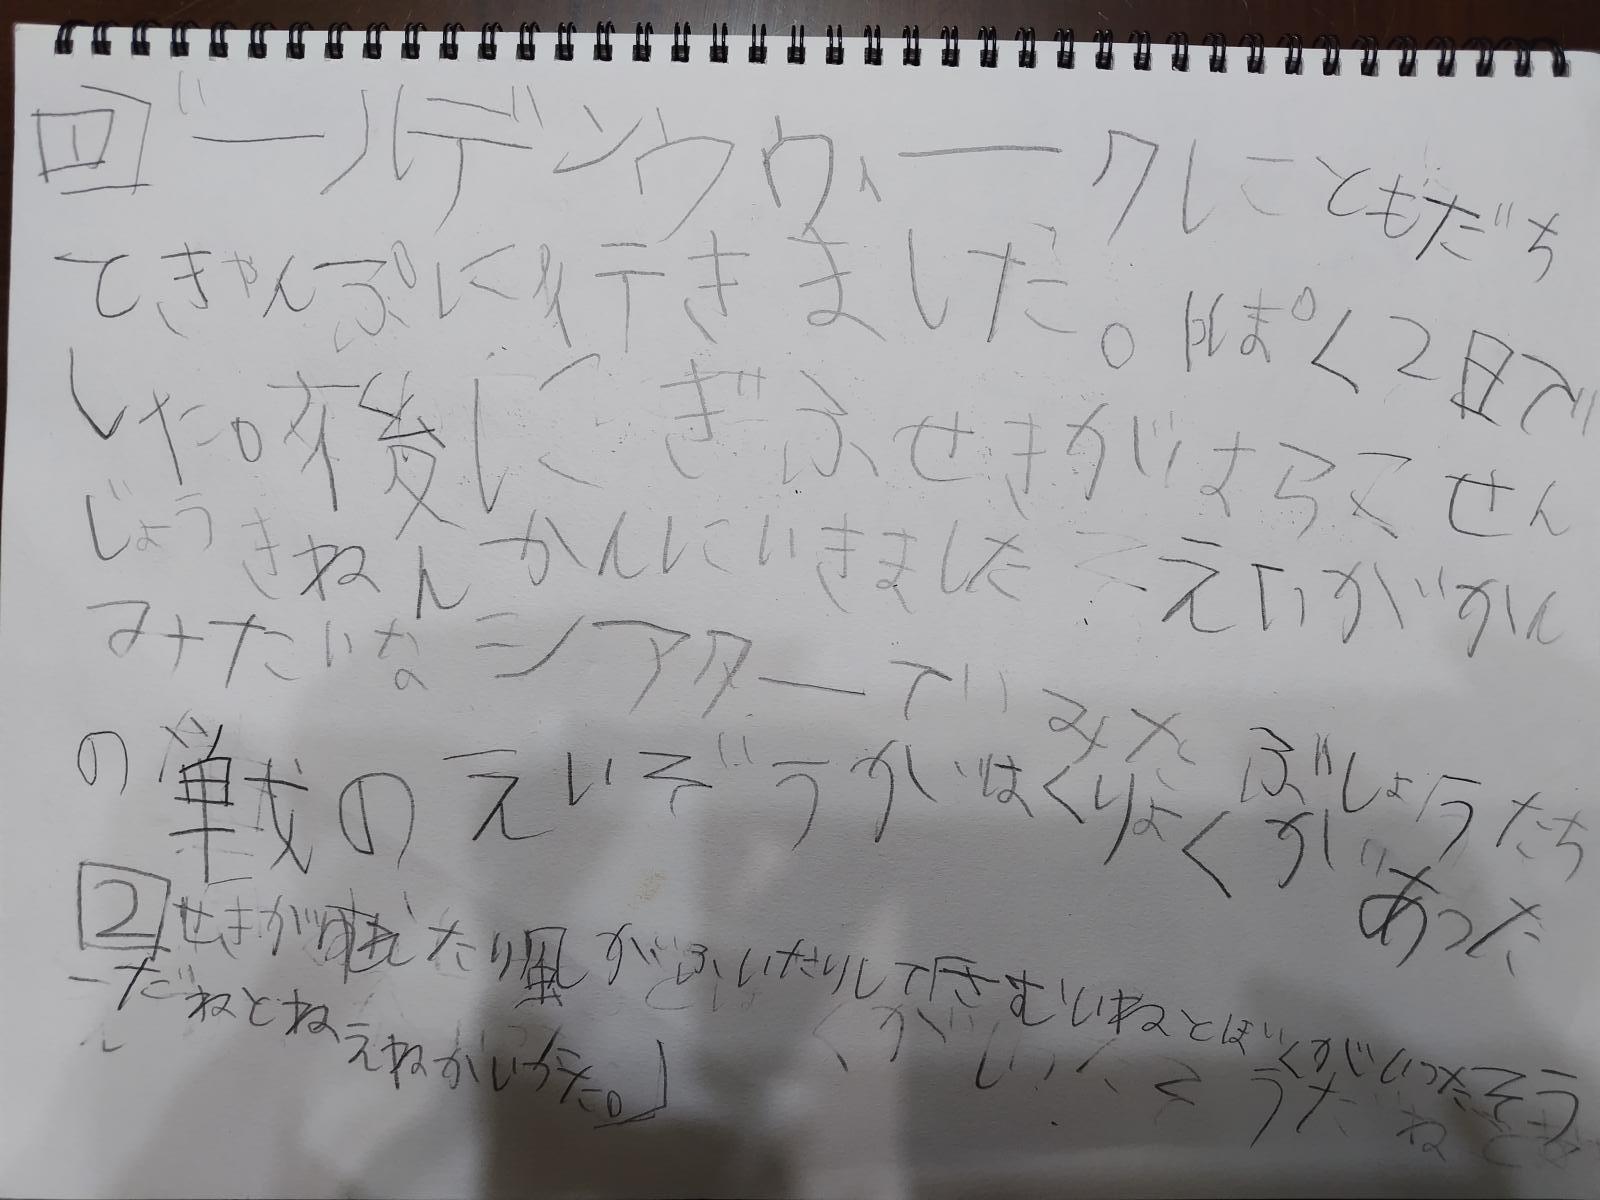 1 ゴールデンウウィークしこともだち
てきゃんぷに行きました。ぽく2日で
した。午後にぎふせきがはらてせん
じょうきねんかんにいきましたそえいがかん
みたいなシアターでみたぶしょうたち
の戦のえいぞうがはくりょくがあった
2 せきが たり風がふいたりしてさむいねとぼくがいったそう
だねとねえねがいった。」